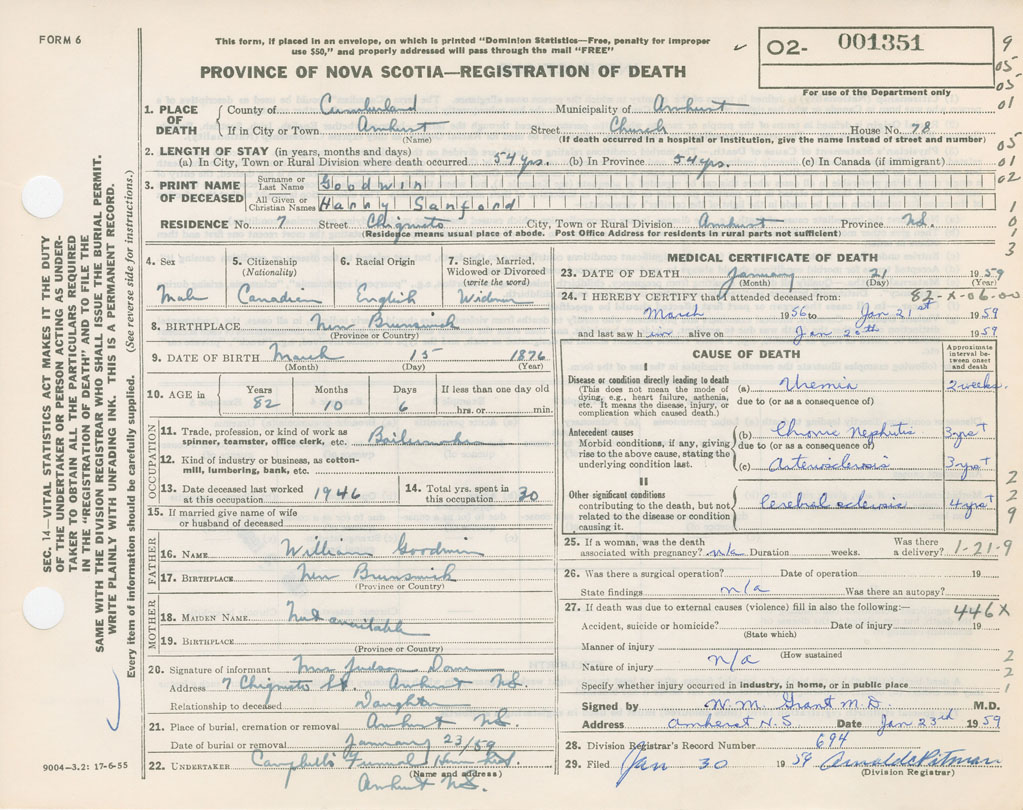 FORM 6
This form, if placed in an envelope, on which is printed "Dominion Statistics—Free, penalty for improper
use $50," and properly addressed will pass through the mail "FREE"
O2- 001351
For use of the Department only
PROVINCE OF NOVA SCOTIA—REGISTRATION OF DEATH
9
05
05
01
05
01
02
1
0
1
3
SEC. 14—VITAL STATISTICS ACT MAKES IT THE DUTY
OF THE UNDERTAKER OR PERSON ACTING AS UNDER-
TAKER TO OBTAIN ALL THE PARTICULARS REQUIRED
IN THE "REGISTRATION OF DEATH" AND FILE THE
SAME WITH THE DIVISION REGISTRAR WHO SHALL ISSUE THE BURIAL PERMIT.
WRITE PLAINLY WITH UNFADING INK. THIS IS A PERMANENT RECORD.
Every item of information should be carefully supplied. (See reverse side for instructions.)
1. PLACE OF DEATH
County of Cumberland Municipality of Amherst
If in City or Town Amherst Street Church House No. 78
(Name) (If death occurred in a hospital or institution, give the name instead of street and number)
2. LENGTH OF STAY (in years, months and days)
(a) In City, Town or Rural Division where death occurred 54 yrs. (b) In Province 54 yrs. (c) In Canada (if immigrant)
3. PRINT NAME OF DECEASED
Surname or Last Name Goodwin
All Given or Christian Names Harry Sanford
RESIDENCE No. 7 Street Chignecto City, Town or Rural Division Amherst Province N.S.
(Residence means usual place of abode. Post Office Address for residents in rural parts not sufficient)
4. Sex
Male
5. Citizenship (Nationality)
Canadian
6. Racial Origin
English
7. Single, Married, Widowed or Divorced (write the word)
Widower
8. BIRTHPLACE New Brunswick
(Province or Country)
9. DATE OF BIRTH March 15 1876
(Month) (Day) (Year)
10. AGE in
Years 82 Months 10 Days 6 If less than one day old
hrs. or min.
OCCUPATION
11. Trade, profession, or kind of work as
spinner, teamster, office clerk, etc. Boilermaker
12. Kind of industry or business, as cotton-
mill, lumbering, bank, etc.
13. Date deceased last worked at this occupation 1946
14. Total yrs. spent in this occupation 30
15. If married give name of wife
or husband of deceased
FATHER
16. NAME William Goodwin
17. BIRTHPLACE New Brunswick
(Province or Country)
MOTHER
18. MAIDEN NAME Not available
19. BIRTHPLACE
(Province or Country)
20. Signature of informant Mrs Judson
Address 7 Chignecto St. Amherst N.S.
Relationship to deceased Daughter
21. Place of burial, cremation or removal Amherst N.S.
Date of burial or removal January 23/59
22. UNDERTAKER Campbell's Funeral Home Ltd.
(Name and address)
Amherst N.S.
9004—3.2: 17-6-55
MEDICAL CERTIFICATE OF DEATH
23. DATE OF DEATH January 21 1959
(Month) (Day) (Year)
24. I HEREBY CERTIFY that I attended deceased from: 82-X-06-00
March 1956 to Jan 21st 1959
and last saw him alive on Jan 20th 1959
CAUSE OF DEATH
Approximate interval between onset and death
I
Disease or condition directly leading to death
(This does not mean the mode of
dying, e.g., heart failure, asthenia,
etc. It means the disease, injury, or
complication which caused death.)
(a) Uremia 2 weeks
due to (or as a consequence of)
Antecedent causes
Morbid conditions, if any, giving
rise to the above cause, stating the
underlying condition last.
(b) Chronic Nephritis 3 yrs+
due to (or as a consequence of)
(c) Arteriosclerosis 3 yrs+
II
Other significant conditions
contributing to the death, but not
related to the disease or condition
causing it.
Cerebral sclerosis 4 yrs+
2
2
9
25. If a woman, was the death
associated with pregnancy? n/a Duration weeks. Was there a delivery? 1-21-9
26. Was there a surgical operation? Date of operation 19
State findings n/a Was there an autopsy?
27. If death was due to external causes (violence) fill in also the following:— 446X
Accident, suicide or homicide? Date of injury 19
(State which)
Manner of injury
(How sustained
Nature of injury n/a
Specify whether injury occurred in industry, in home, or in public place
2
2
1
Signed by W. M. Grant M.D. M.D.
Address Amherst N.S. Date Jan 23rd 1959
28. Division Registrar's Record Number 694
29. Filed Jan 30 1959
(Division Registrar)